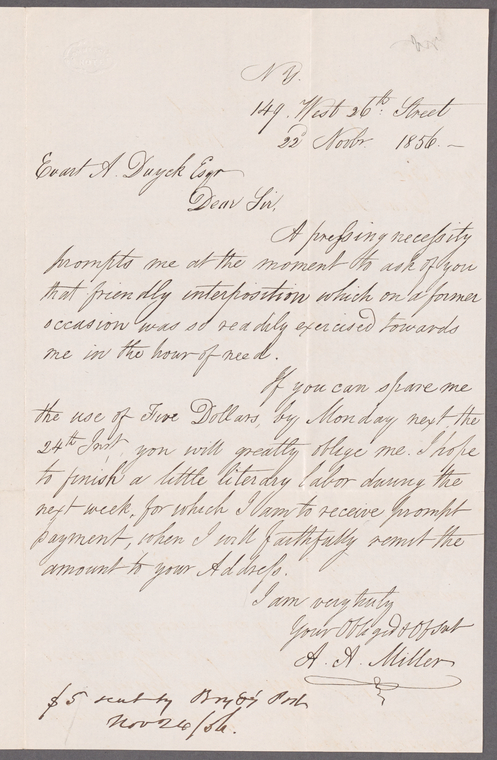 N Y.
149. West 26th. Street
22d Novbr. 1856. —
Evart A. Duyck Esqr
Dear Sir,
A pressing necessity
prompts me at the moment to ask of you
that friendly interposition which on a former
occasion was so readily exercised towards
me in the hour of need.
If you can spare me
the use of Five Dollars, by Monday next, the
24th Inst, you will greatly oblige me. I hope
to finish a little literary labor during the
next week, for which I am to receive prompt
payment, when I will faithfully remit the
amount to your Address.
I am very truly
Your Obliged & Ob Svt
A. A. Miller
$5 sent by Boyd's Post
Nov 24/56.